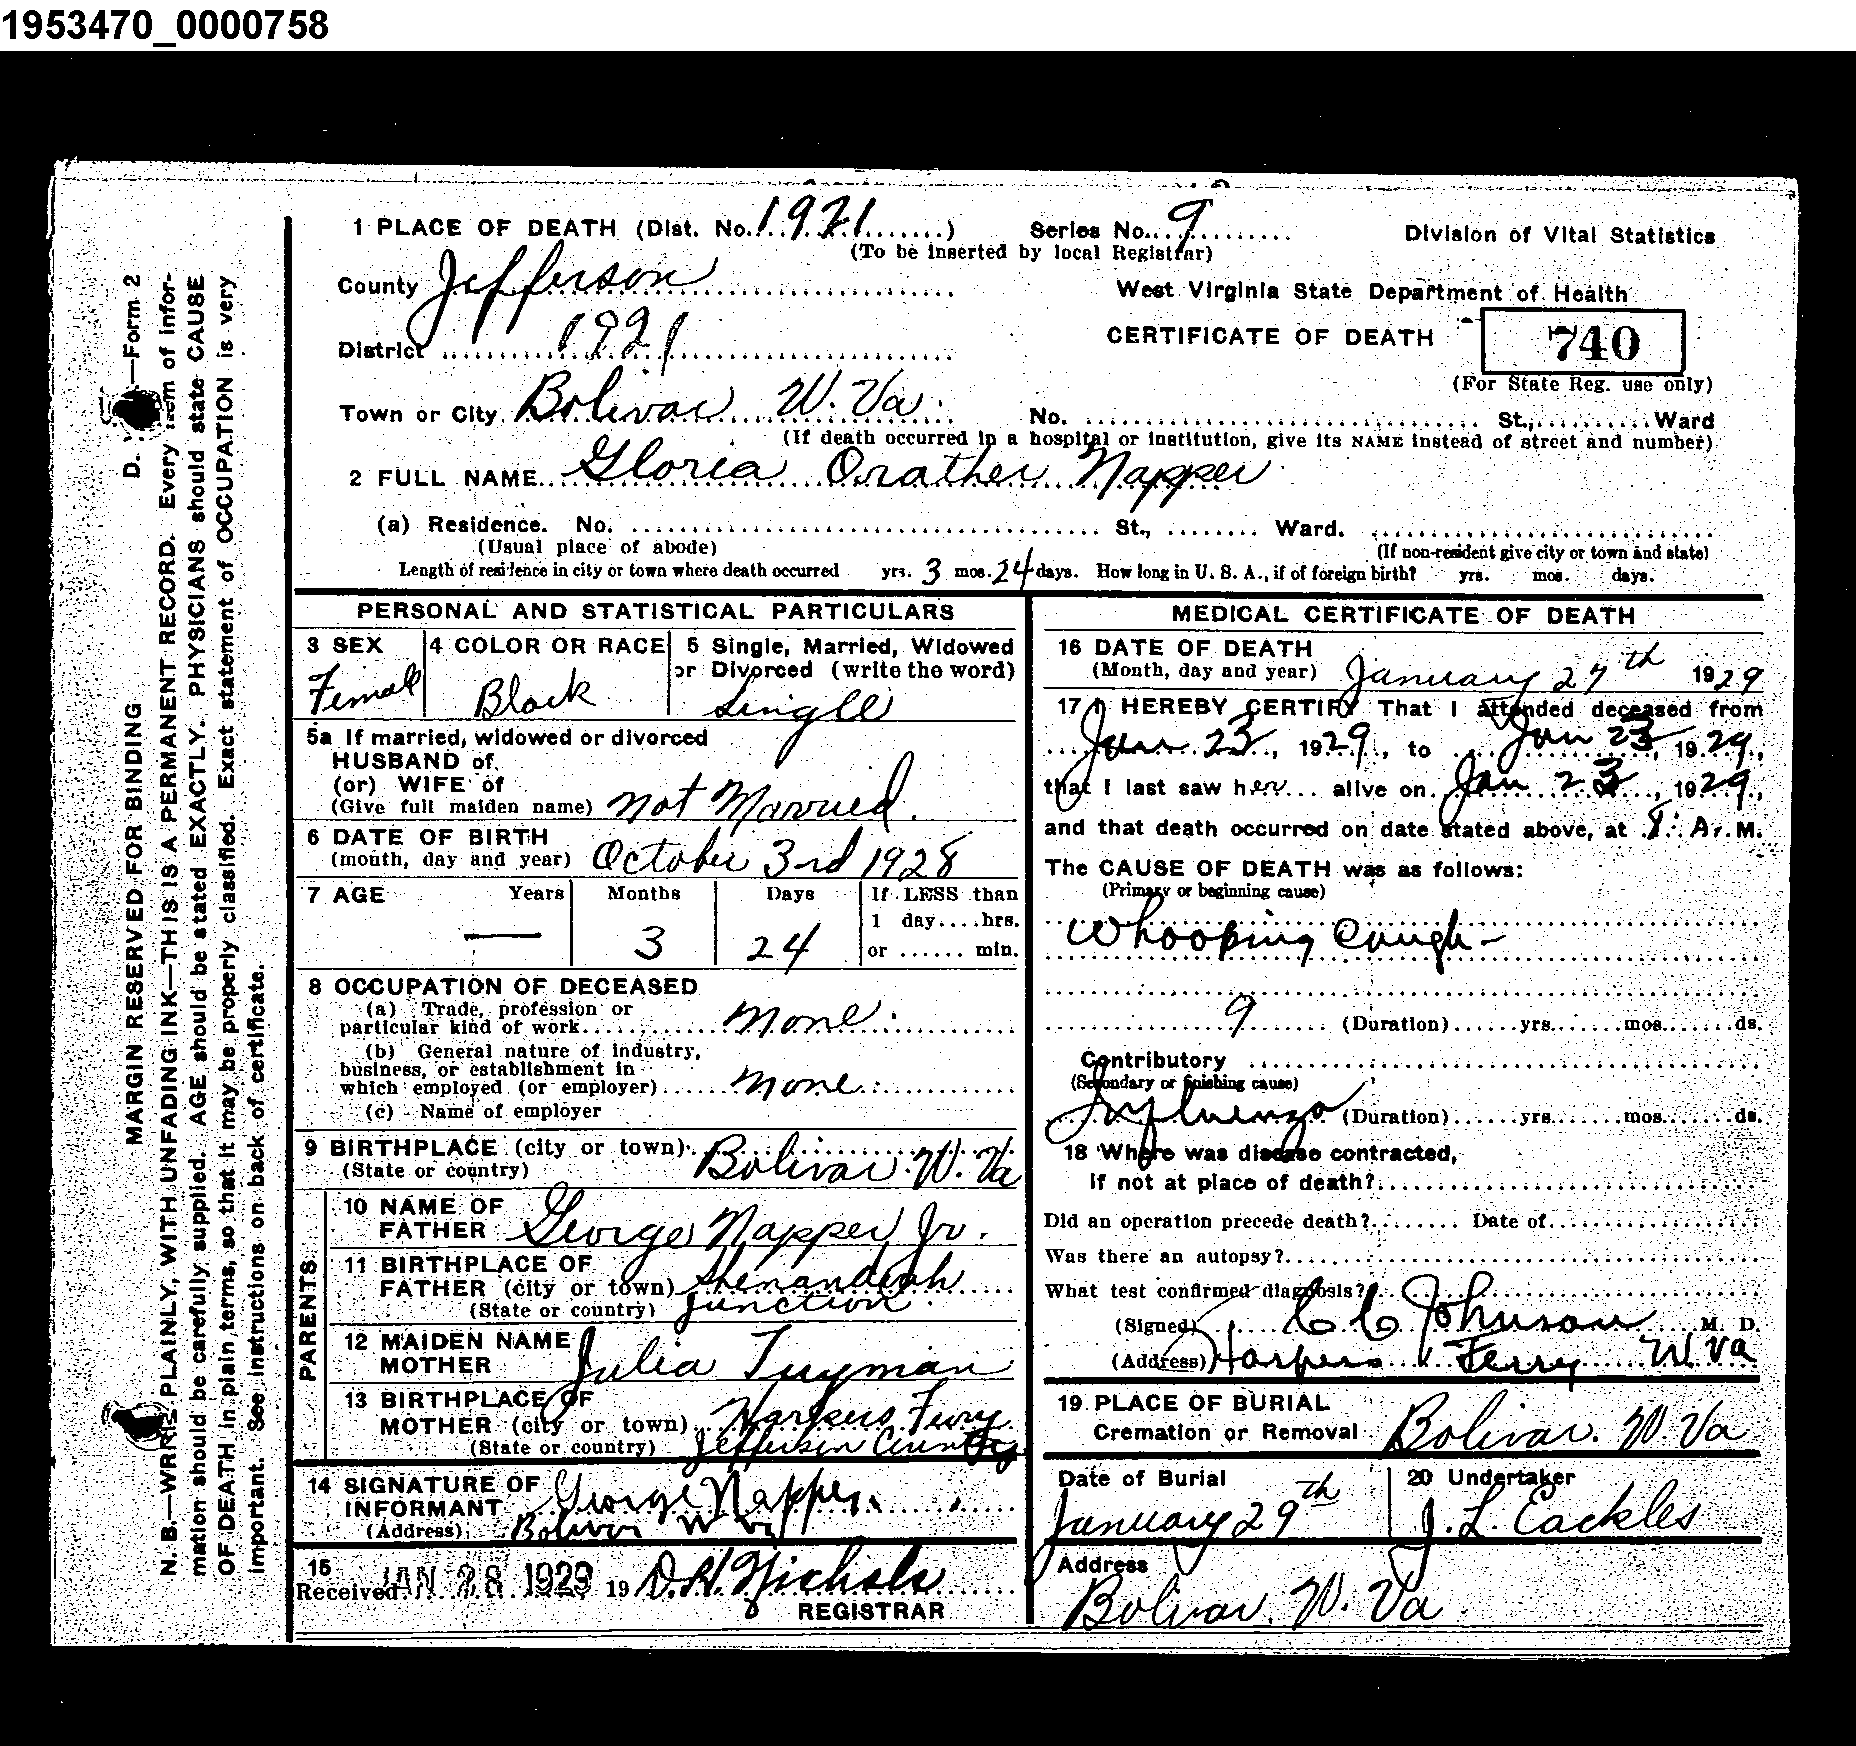 1953470_0000758
1 PLACE OF DEATH (Dist. No. 1921 ) Series No. 9 Division of Vital Statistics
(To be inserted by local Registrar)
County Jefferson West Virginia State Department of Health
District 1921 CERTIFICATE OF DEATH 740
(For State Reg. use only)
Town or City Bolivar W. Va. No. St., Ward
(If death occurred in a hospital or institution, give its NAME instead of street and number)
2 FULL NAME Gloria Orather Napper
(a) Residence. No. St., Ward.
(Usual place of abode) (If non-resident give city or town and state)
Length of residence in city or town where death occurred yrs. 3 mos. 24 days. How long in U. S. A., if of foreign birth? yrs. mos. days.
PERSONAL AND STATISTICAL PARTICULARS
3 SEX 4 COLOR OR RACE 5 Single, Married, Widowed
or Divorced (write the word)
Female Black Single
5a If married, widowed or divorced
HUSBAND of
(or) WIFE of
(Give full maiden name) Not Married.
6 DATE OF BIRTH
(month, day and year) October 3rd 1928
7 AGE Years Months Days If LESS than
1 day....hrs.
— 3 24 or ...... min.
8 OCCUPATION OF DECEASED
(a) Trade, profession or
particular kind of work None
(b) General nature of industry,
business, or establishment in
which employed (or employer) None
(c) Name of employer
9 BIRTHPLACE (city or town) Bolivar W. Va
(State or country)
PARENTS
10 NAME OF
FATHER George Napper Jr.
11 BIRTHPLACE OF
FATHER (city or town) Shenandoah
(State or country) Junction
12 MAIDEN NAME
MOTHER Julia Twyman
13 BIRTHPLACE OF
MOTHER (city or town) Harpers Ferry
(State or country) Jefferson County
14 SIGNATURE OF
INFORMANT George Napper
(Address) Bolivar W Va
15
Received JAN 28 1929 19 D. H. Nichols
REGISTRAR
MEDICAL CERTIFICATE OF DEATH
16 DATE OF DEATH
(Month, day and year) January 27th 1929
17 I HEREBY CERTIFY That I attended deceased from
Jan 23, 1929, to Jan 23, 1929,
that I last saw her alive on Jan 23, 1929,
and that death occurred on date stated above, at 8 A. M.
The CAUSE OF DEATH was as follows:
(Primary or beginning cause)
Whooping Cough
9 (Duration) yrs. mos. ds.
Contributory
(Secondary or finishing cause)
Influenza (Duration) yrs. mos. ds.
18 Where was disease contracted,
If not at place of death?
Did an operation precede death? Date of
Was there an autopsy?
What test confirmed diagnosis?
(Signed) C C Johnson M. D.
(Address) Harpers Ferry W Va
19 PLACE OF BURIAL
Cremation or Removal Bolivar. W. Va
Date of Burial 20 Undertaker
January 29th J. L. Eackles
Address
Bolivar. W. Va.
D. —Form 2
MARGIN RESERVED FOR BINDING
N. B.—WRITE PLAINLY, WITH UNFADING INK—THIS IS A PERMANENT RECORD. Every item of infor-
mation should be carefully supplied. AGE should be stated EXACTLY. PHYSICIANS should state CAUSE
OF DEATH in plain terms, so that it may be properly classified. Exact statement of OCCUPATION is very
important. See instructions on back of certificate.